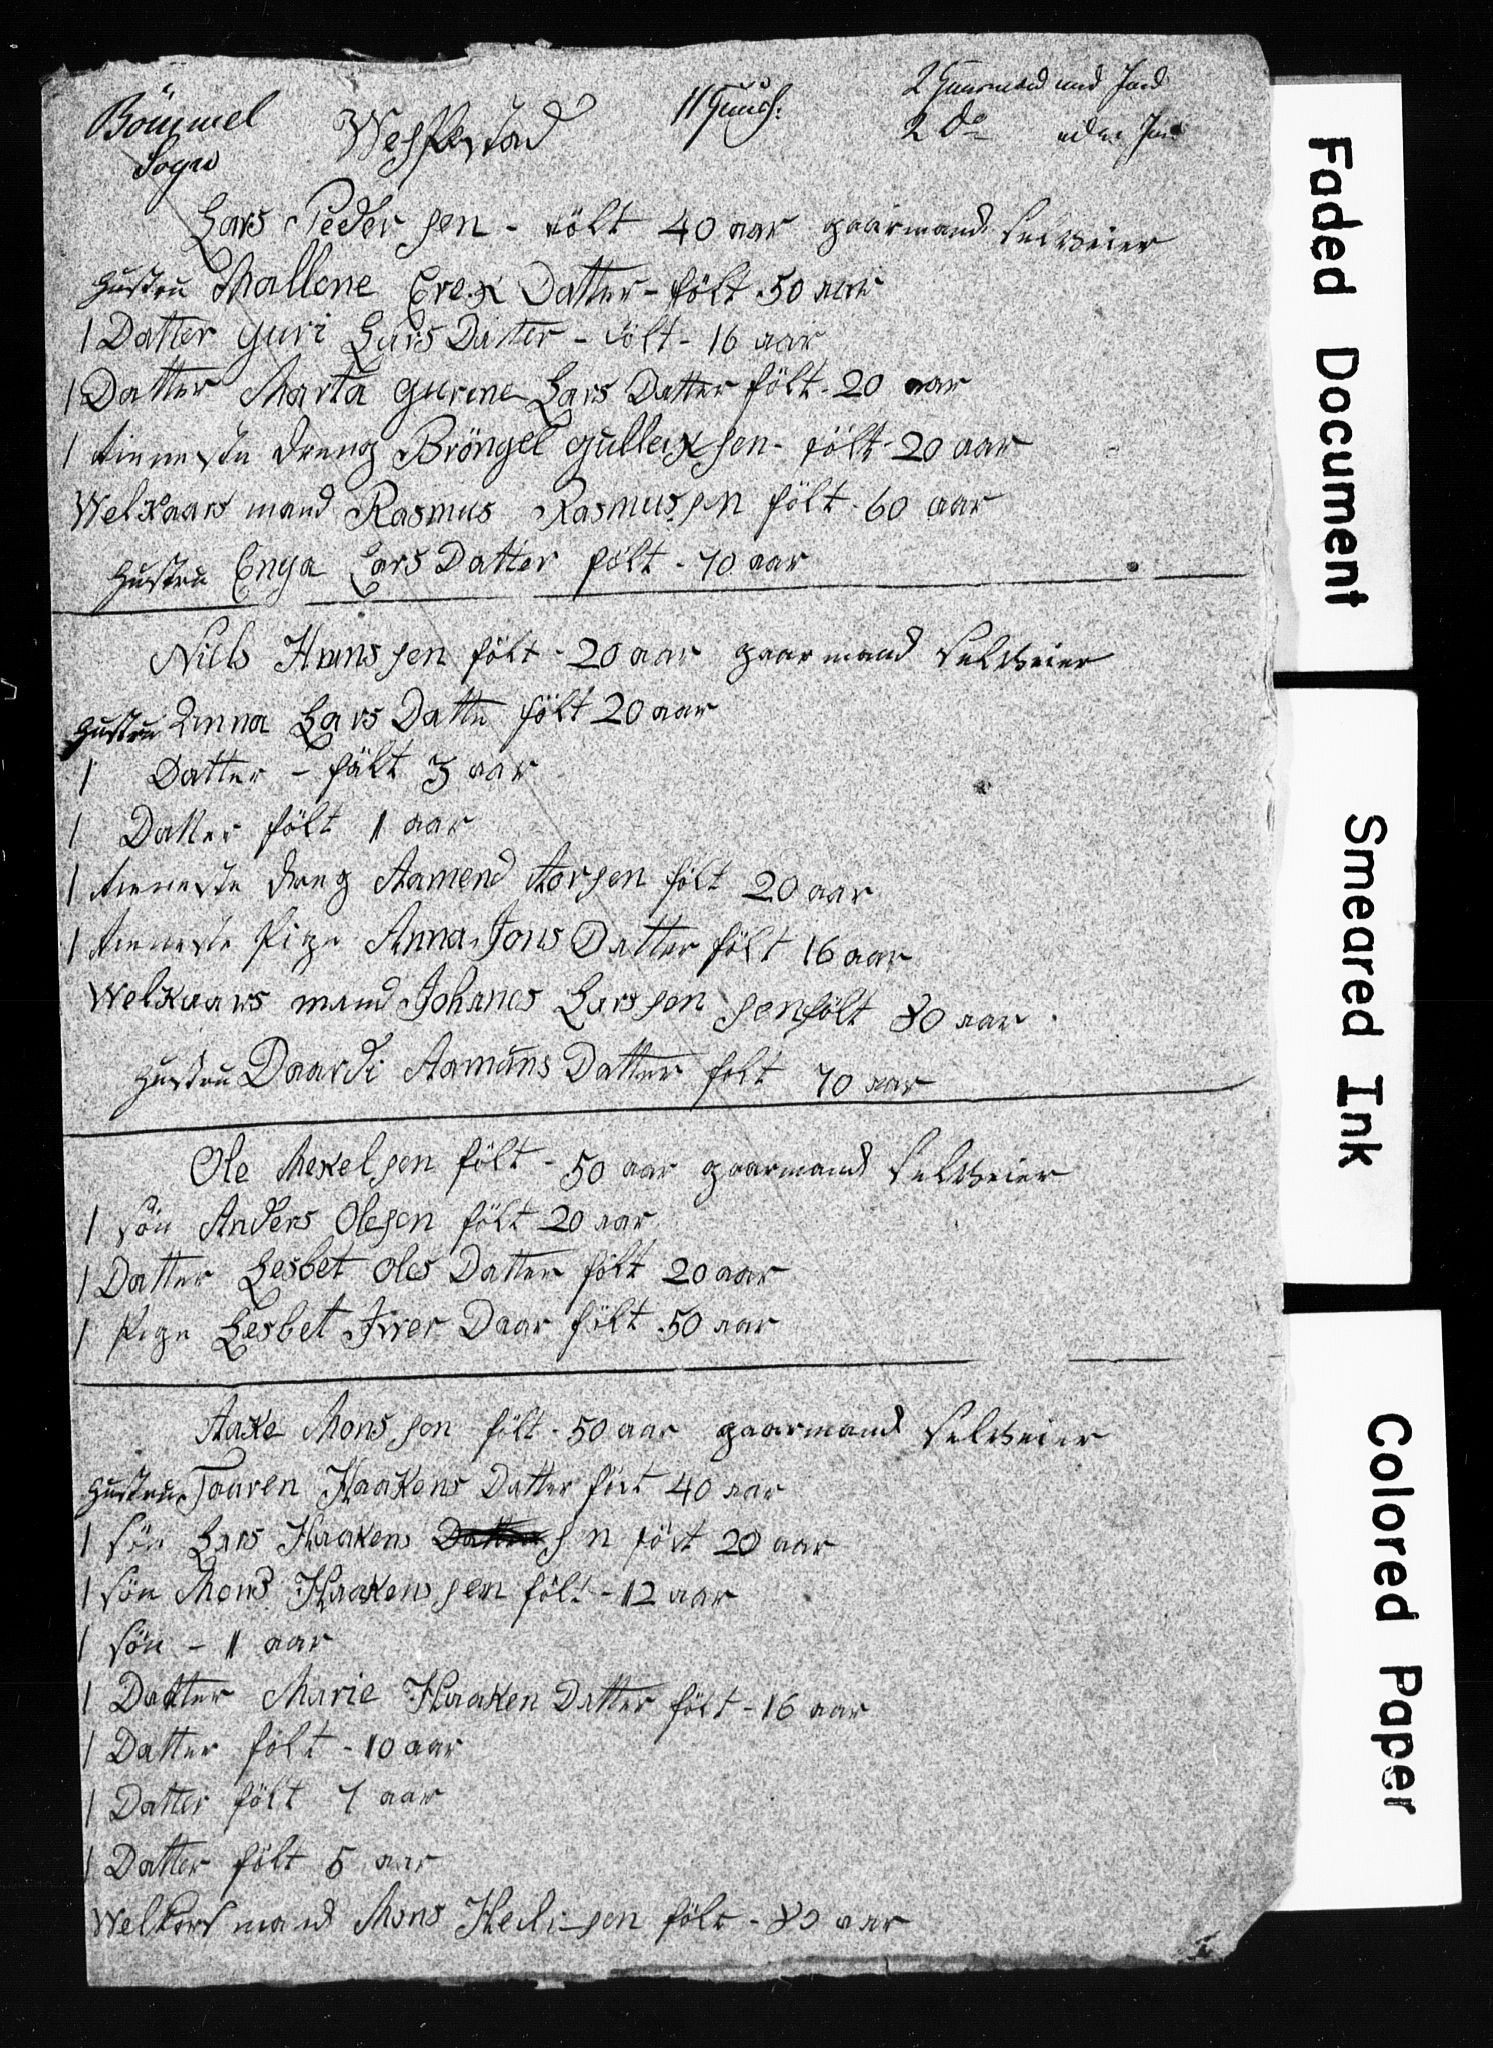 Bömmel Sogn
Wespestad
2 Gaarmænd med Jord
2 Do uden Jord
Lars Peder sen - fölt 40 aar gaarmand Selveier
Hustru Mallene Erex Datter - fölt 50 aar
1 Datter Guri Lars Datter - fölt - 16 aar
1 Datter Marta gurine Lars Datter fölt - 20 aar
1 tieneste dreng Bröngel gulleixsen - fölt - 20 aar
Welkaars mand Rasmus Rasmus sen fölt - 60 aar
Hustru Enga Lars Datter fölt - 70 aar
Nills Hans sen fölt - 20 aar gaar mand Selveier
Hustru Anna Lars Datter fölt 20 aar
1 Datter - fölt 3 aar
1 Datter fölt 1 aar
1 tieneste dreng Aamend Aorsen fölt 20 aar
1 tieneste Pige Anna Jons Datter fölt 16 aar
Welkaars mand Johanes Larssen sen fölt 80 aar
Hustru Daardi Aamuns Datter fölt 70 aar
Ole Mekelsen fölt - 50 aar gaarmand Selveier
1 sön Anders Olesen fölt - 20 aar
1 Datter Lesbet Oles Datter fölt 20 aar
1 Pige Lesbet Iver Daar fölt - 50 aar
Aake Mons sen fölt - 50 aar gaarmand Selveier
Hustru Taaren Haakens Datter fölt 40 aar
1 sön Lars Haakens sn fölt 20 aar
1 sön Mons Haakens sen fölt - 12 aar
1 sön - 11 aar
1 Datter Marie Haaken Datter fölt - 16 aar
1 Datter fölt - 10 aar
1 Datter fölt 7 aar
1 Datter fölt 5 aar
Welkors mand Mons sen fölt - 80 aar
Faded Document
Smeared Ink
Colored Paper